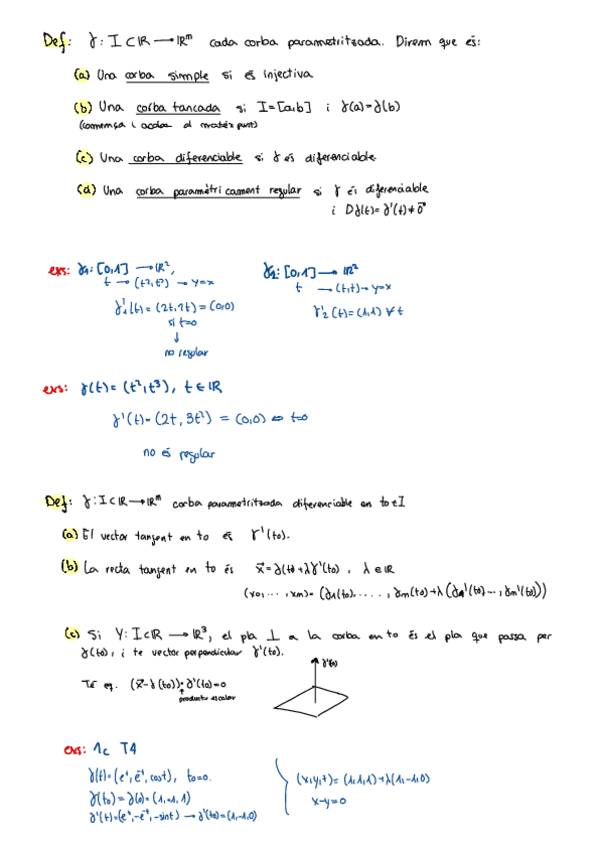 Def: γ: I ⊂ ℝ → ℝᵐ cada corba parametritzada. Direm que és:
(a) Una corba simple si és injectiva
(b) Una corba tancada si I=[a,b] i γ(a)=γ(b)
(comença i acaba al mateix punt)
(c) Una corba diferenciable si γ és diferenciable
(d) Una corba paramètricament regular si γ és diferenciable
i Dγ(t)=γ'(t)≠0⃗
exs: γ₁: [0,1] → ℝ², γ₂: [0,1] → ℝ²
t → (t²,t²) → y=x t → (t,t) → y=x
γ₁'(t)=(2t,2t)=(0,0) γ'₂(t)=(1,1) ∀t
si t=0
↓
no regular
exs: γ(t)=(t²,t³), t∈ℝ
γ'(t)=(2t,3t²)=(0,0) ⇔ t=0
no és regular
Def: γ: I⊂ℝ → ℝᵐ corba parametritzada diferenciable en t₀∈I
(a) El vector tangent en t₀ és γ'(t₀).
(b) La recta tangent en t₀ és x⃗=γ(t₀)+λγ'(t₀), λ∈ℝ
(x₀,...,xₘ)=(γ₁(t₀),.....,γₘ(t₀)+λ(γ₁'(t₀)...,γₘ'(t₀)))
(c) Si γ: I⊂ℝ → ℝ³, el pla ⊥ a la corba en t₀ és el pla que passa per
γ(t₀), i te vector perpendicular γ'(t₀).
γ'(t₀)
Té eq. (x⃗-γ(t₀))·γ'(t₀)=0
producte escalar
exs: 1c T4
γ(t)=(eᵗ,e⁻ᵗ,cost), t₀=0.
(x,y,z)=(1,1,1)+λ(1,-1,0)
γ(t₀)=γ(0)=(1,1,1)
x-y=0
γ'(t)=(eᵗ,-e⁻ᵗ,-sint) → γ'(t₀)=(1,-1,0)